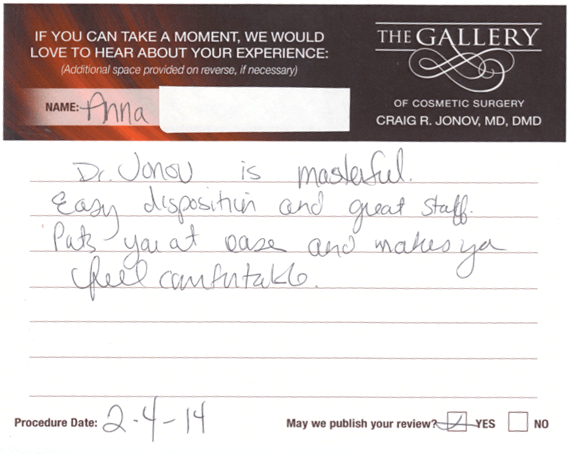 IF YOU CAN TAKE A MOMENT, WE WOULD
LOVE TO HEAR ABOUT YOUR EXPERIENCE:
(Additional space provided on reverse, if necessary)
NAME: Anna
THE GALLERY
OF COSMETIC SURGERY
CRAIG R. JONOV, MD, DMD
Dr. Jonov is masterful.
Easy disposition and great staff.
Puts you at ease and makes ya
feel comfortable.
Procedure Date: 2-4-14
May we publish your review? YES NO